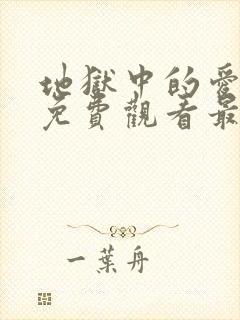 地獄中的愛
免費觀看最
一葉舟